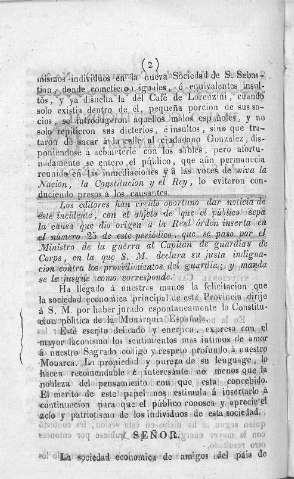 ( 2 )
mismos individuos en la nueva Sociedad de S. Sebas-
tian, donde cometieron iguales, ó equivalentes insul-
tos, y ya disuelta la del Café de Lorenzini, cuando
solo existia dentro de él, pequeña porcion de sus so-
cios, se introdugeron aquellos malos españoles, y no
solo repitieron sus dicterios, é insultos, sino que tra-
taron de sacar á la calle al ciudadano Gonzalez, dis-
poniendose á acometerle con los sables, pero afortu-
nadamente se entero el público, que aun permanecia
reunido en las inmediaciones y á las voces de viva la
Nacion, la Constitucion y el Rey, lo evitaron con-
duciendo presos á los causantes.
Los editores han creido oportuno dar noticia de
este incidente, con el objeto de que el público sepa
la causa que dio origen á la Real órden inserta en
el número 25 de este periódico, que se pasó por el
Ministro de la guerra al Capitan de guardias de
Corps, en la que S. M. declara su justa indigna-
cion contra los procedimientos del guardia; y manda
se le juzgue como corresponde.
Ha llegado á nuestras manos la felicitacion que
la sociedad económica principal de esta Provincia dirije
á S. M. por haber jurado espontaneamente la Constitu-
cion política de la Monarquía Española.
Este escrito delicado y energico, expresa con el
mayor laconismo los sentimientos mas intimos de amor
á nuestro Sagrado codigo y respeto profundo á nuestro
Monarca. La propiedad y pureza de su lenguage, lo
hacen recomendable é interesante no menos que la
nobleza del pensamiento con que está concebido.
El merito de este papel nos estimula á insertarlo á
continuacion para que el público conosca y aprecie el
zelo y patriotismo de los individuos de esta sociedad.
SEÑOR.
La sociedad economica de amigos del pais de